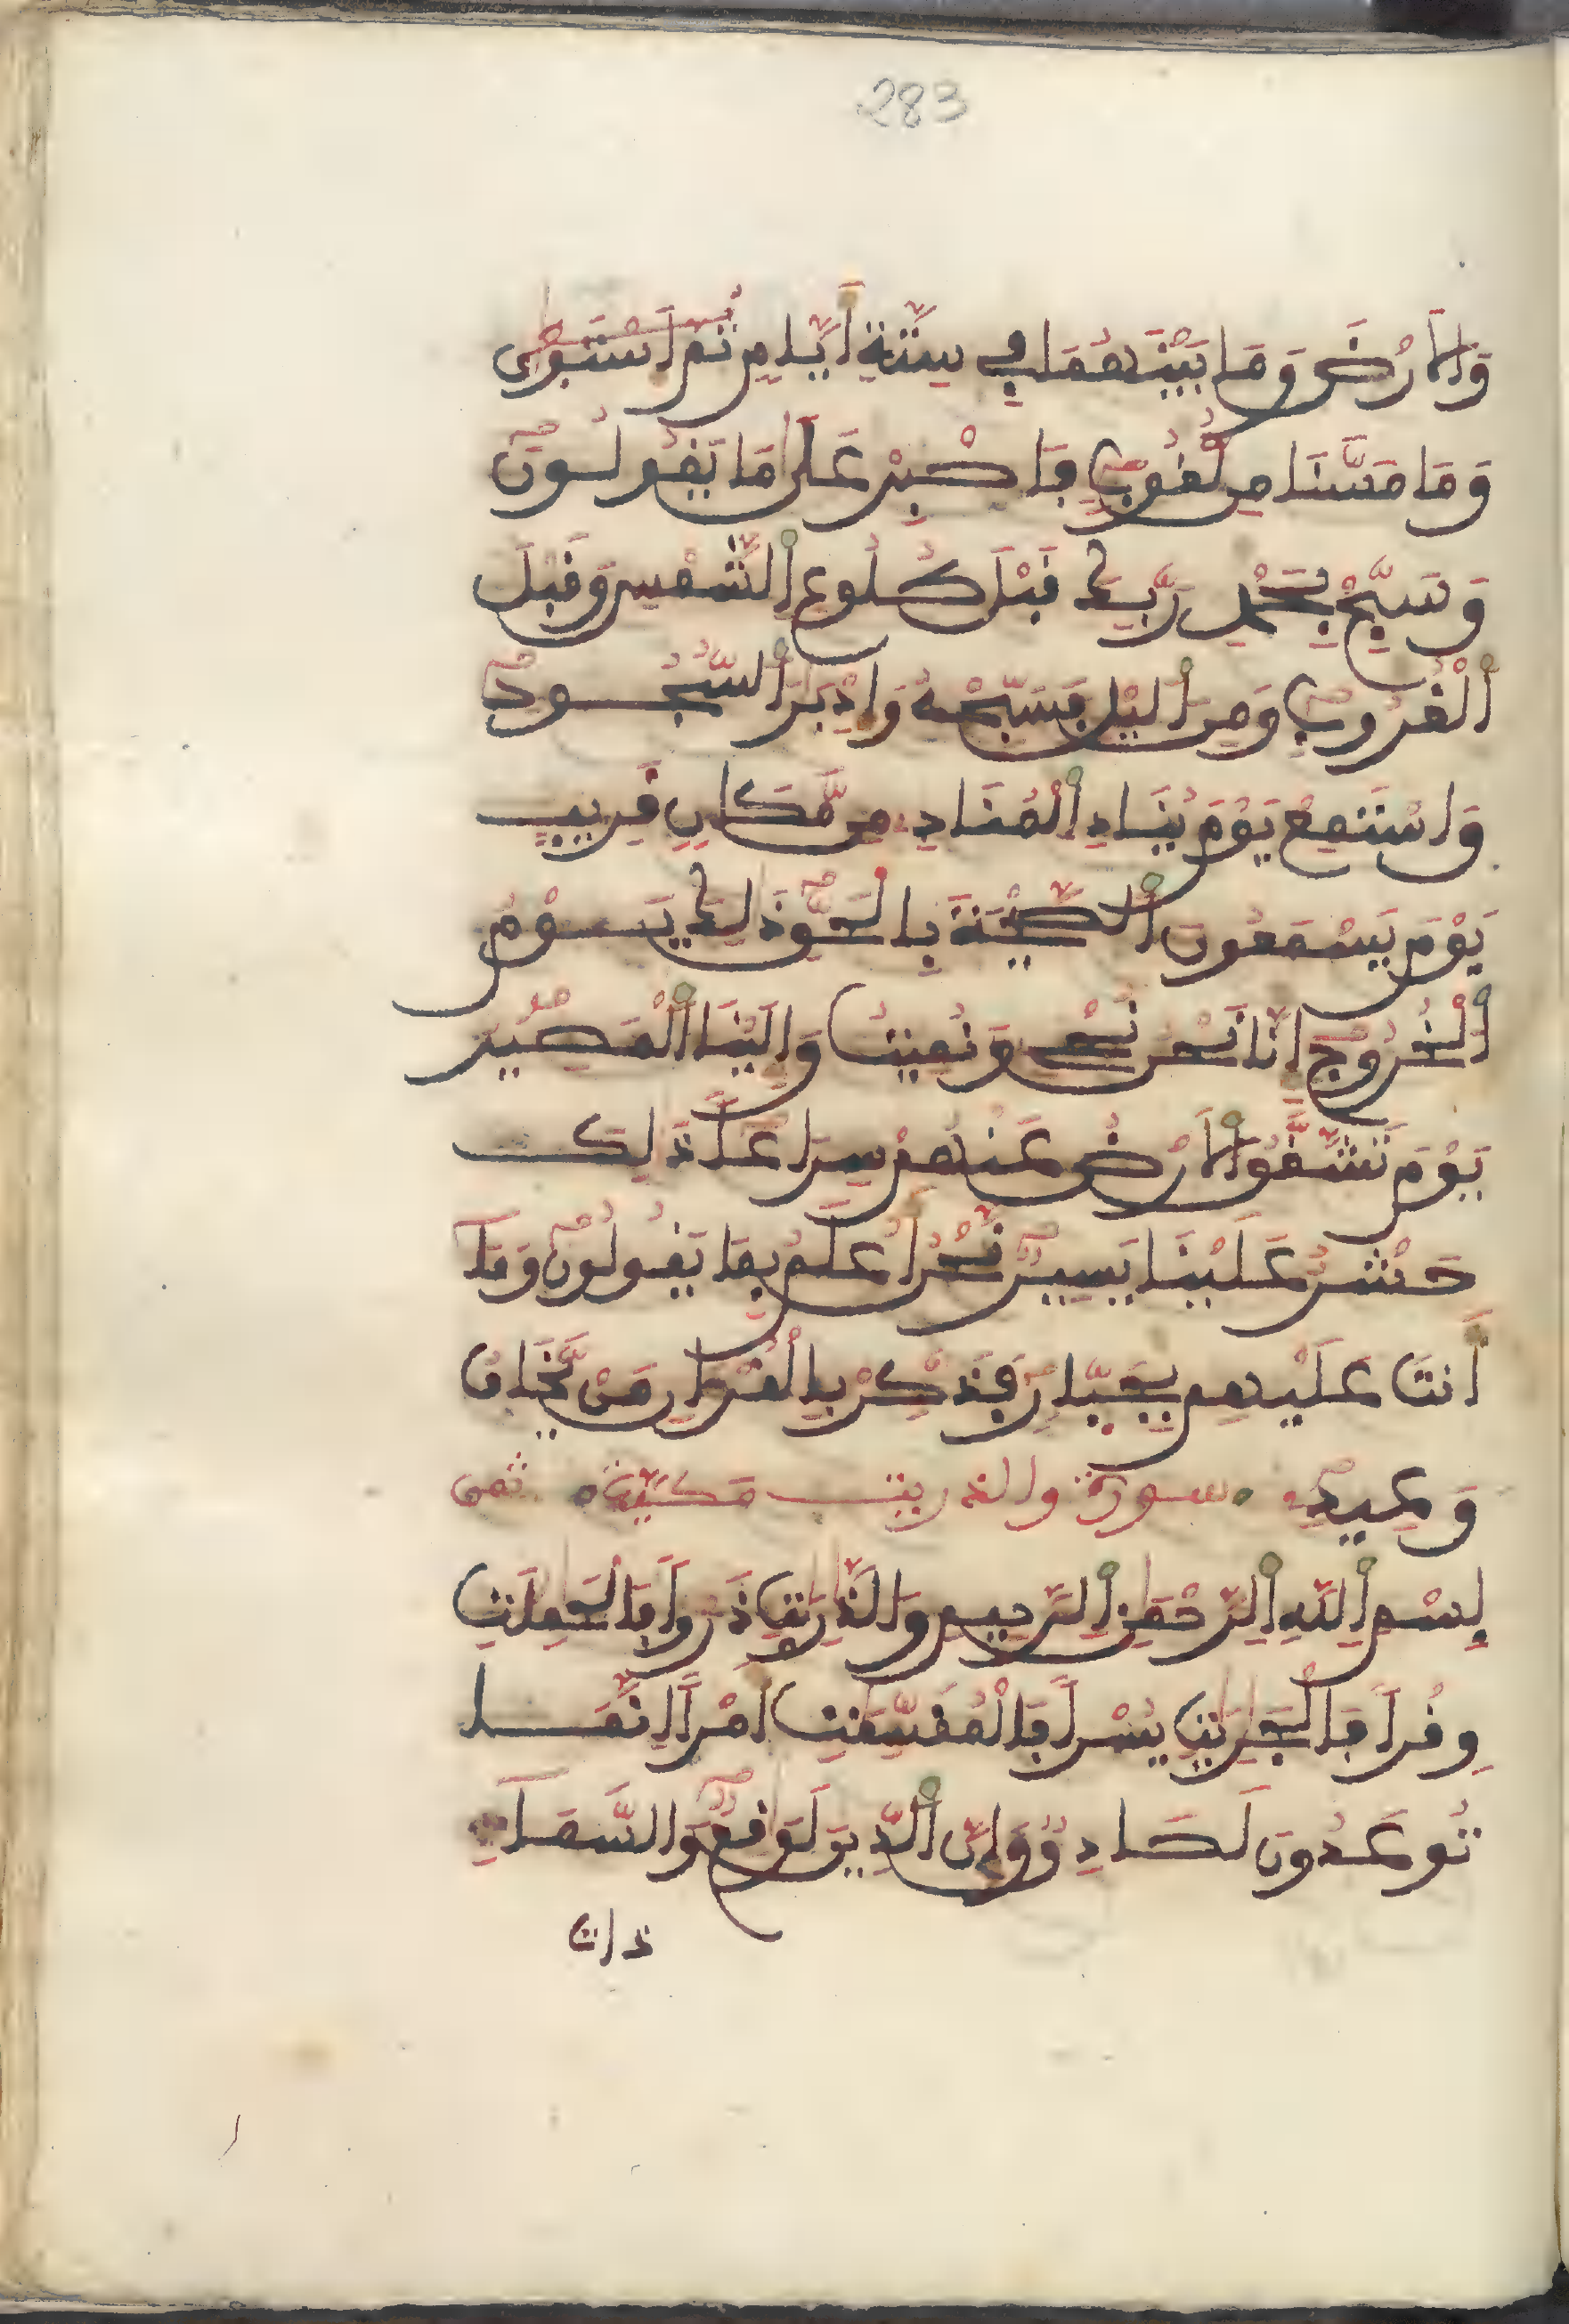 283
والارض وما بينهما في ستة أيام ثم استوى
وما مسنا من لغوب فاصبر على ما يقولون
وسبح بحمد ربك قبل طلوع الشمس وقبل
الغروب ومن اليل فسبحه وادبر السجود
واستمع يوم يناد المناد من مكان قريب
يوم يسمعون الصيحة بالحق ذلك يوم
الخروج انا نحن نحي ونميت والينا المصير
يوم تشقق الارض عنهم سراعا ذلك
حشر علينا يسير نحن أعلم بما يقولون وما
أنت عليهم بجبار فذكر بالقرءان من يخاف
وعيد سورة والذريت مكية ثمن
بسم الله الرحمن الرحيم والذريت ذروا فالحملت
وقرا فالجريت يسرا فالمقسمت أمرا انما
توعدون لصادق وان الدين لوقع والسماء
ذات